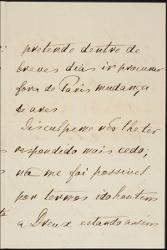 pretende dentro de
breves dias ir procurar
fora de Paris mudança
de ares.
Desculpeme não lhe ter
respondido mais cedo;
não me foi possivel
por termos ido hontem
a Dreux estando assim